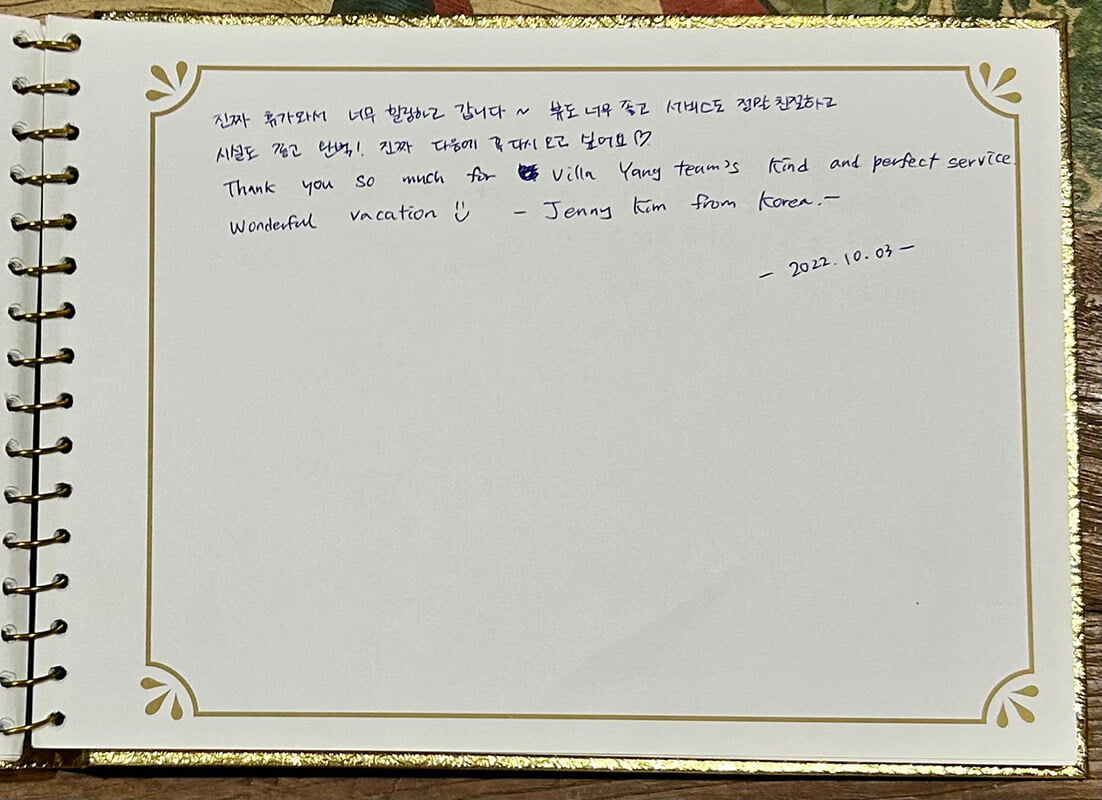 진짜 휴가와서 너무 힐링하고 갑니다 ~ 뷰도 너무 좋고 서비스도 정말 친절하고
시설도 좋고 완벽! 진짜 다음에 꼭 다시 오고 싶어요♡
Thank you so much for Villa Yang team's kind and perfect service.
Wonderful vacation ☺ - Jenny Kim from Korea.-
- 2022.10.03 -